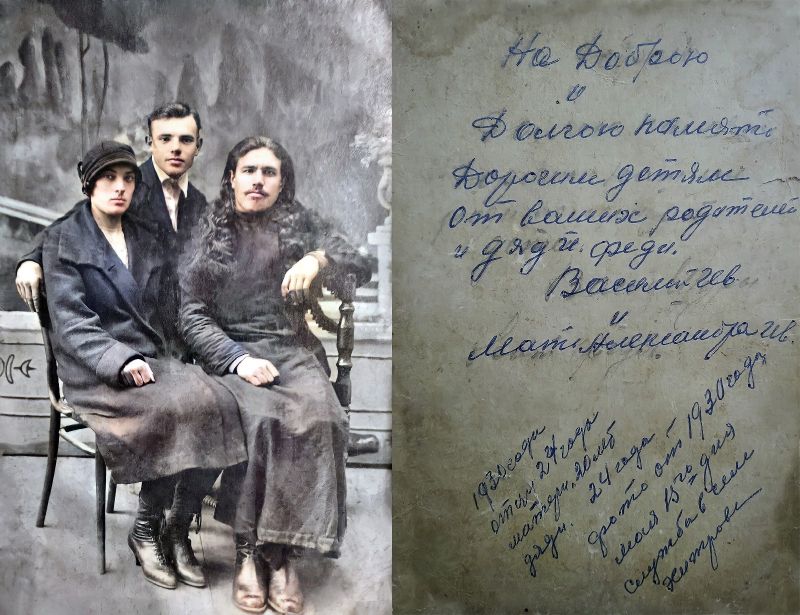 На Доброю
и
Долгою память
Дорогим детям
от ваших родителей
и дяди. Феди.
Василий Гев.
и
Мать Александра Гев.
1930 года
отцу 24 года
матери. 20 лет
дяди. 24 года
фото от 1930 года
мая 15го дня
служба в селе
Хитрове